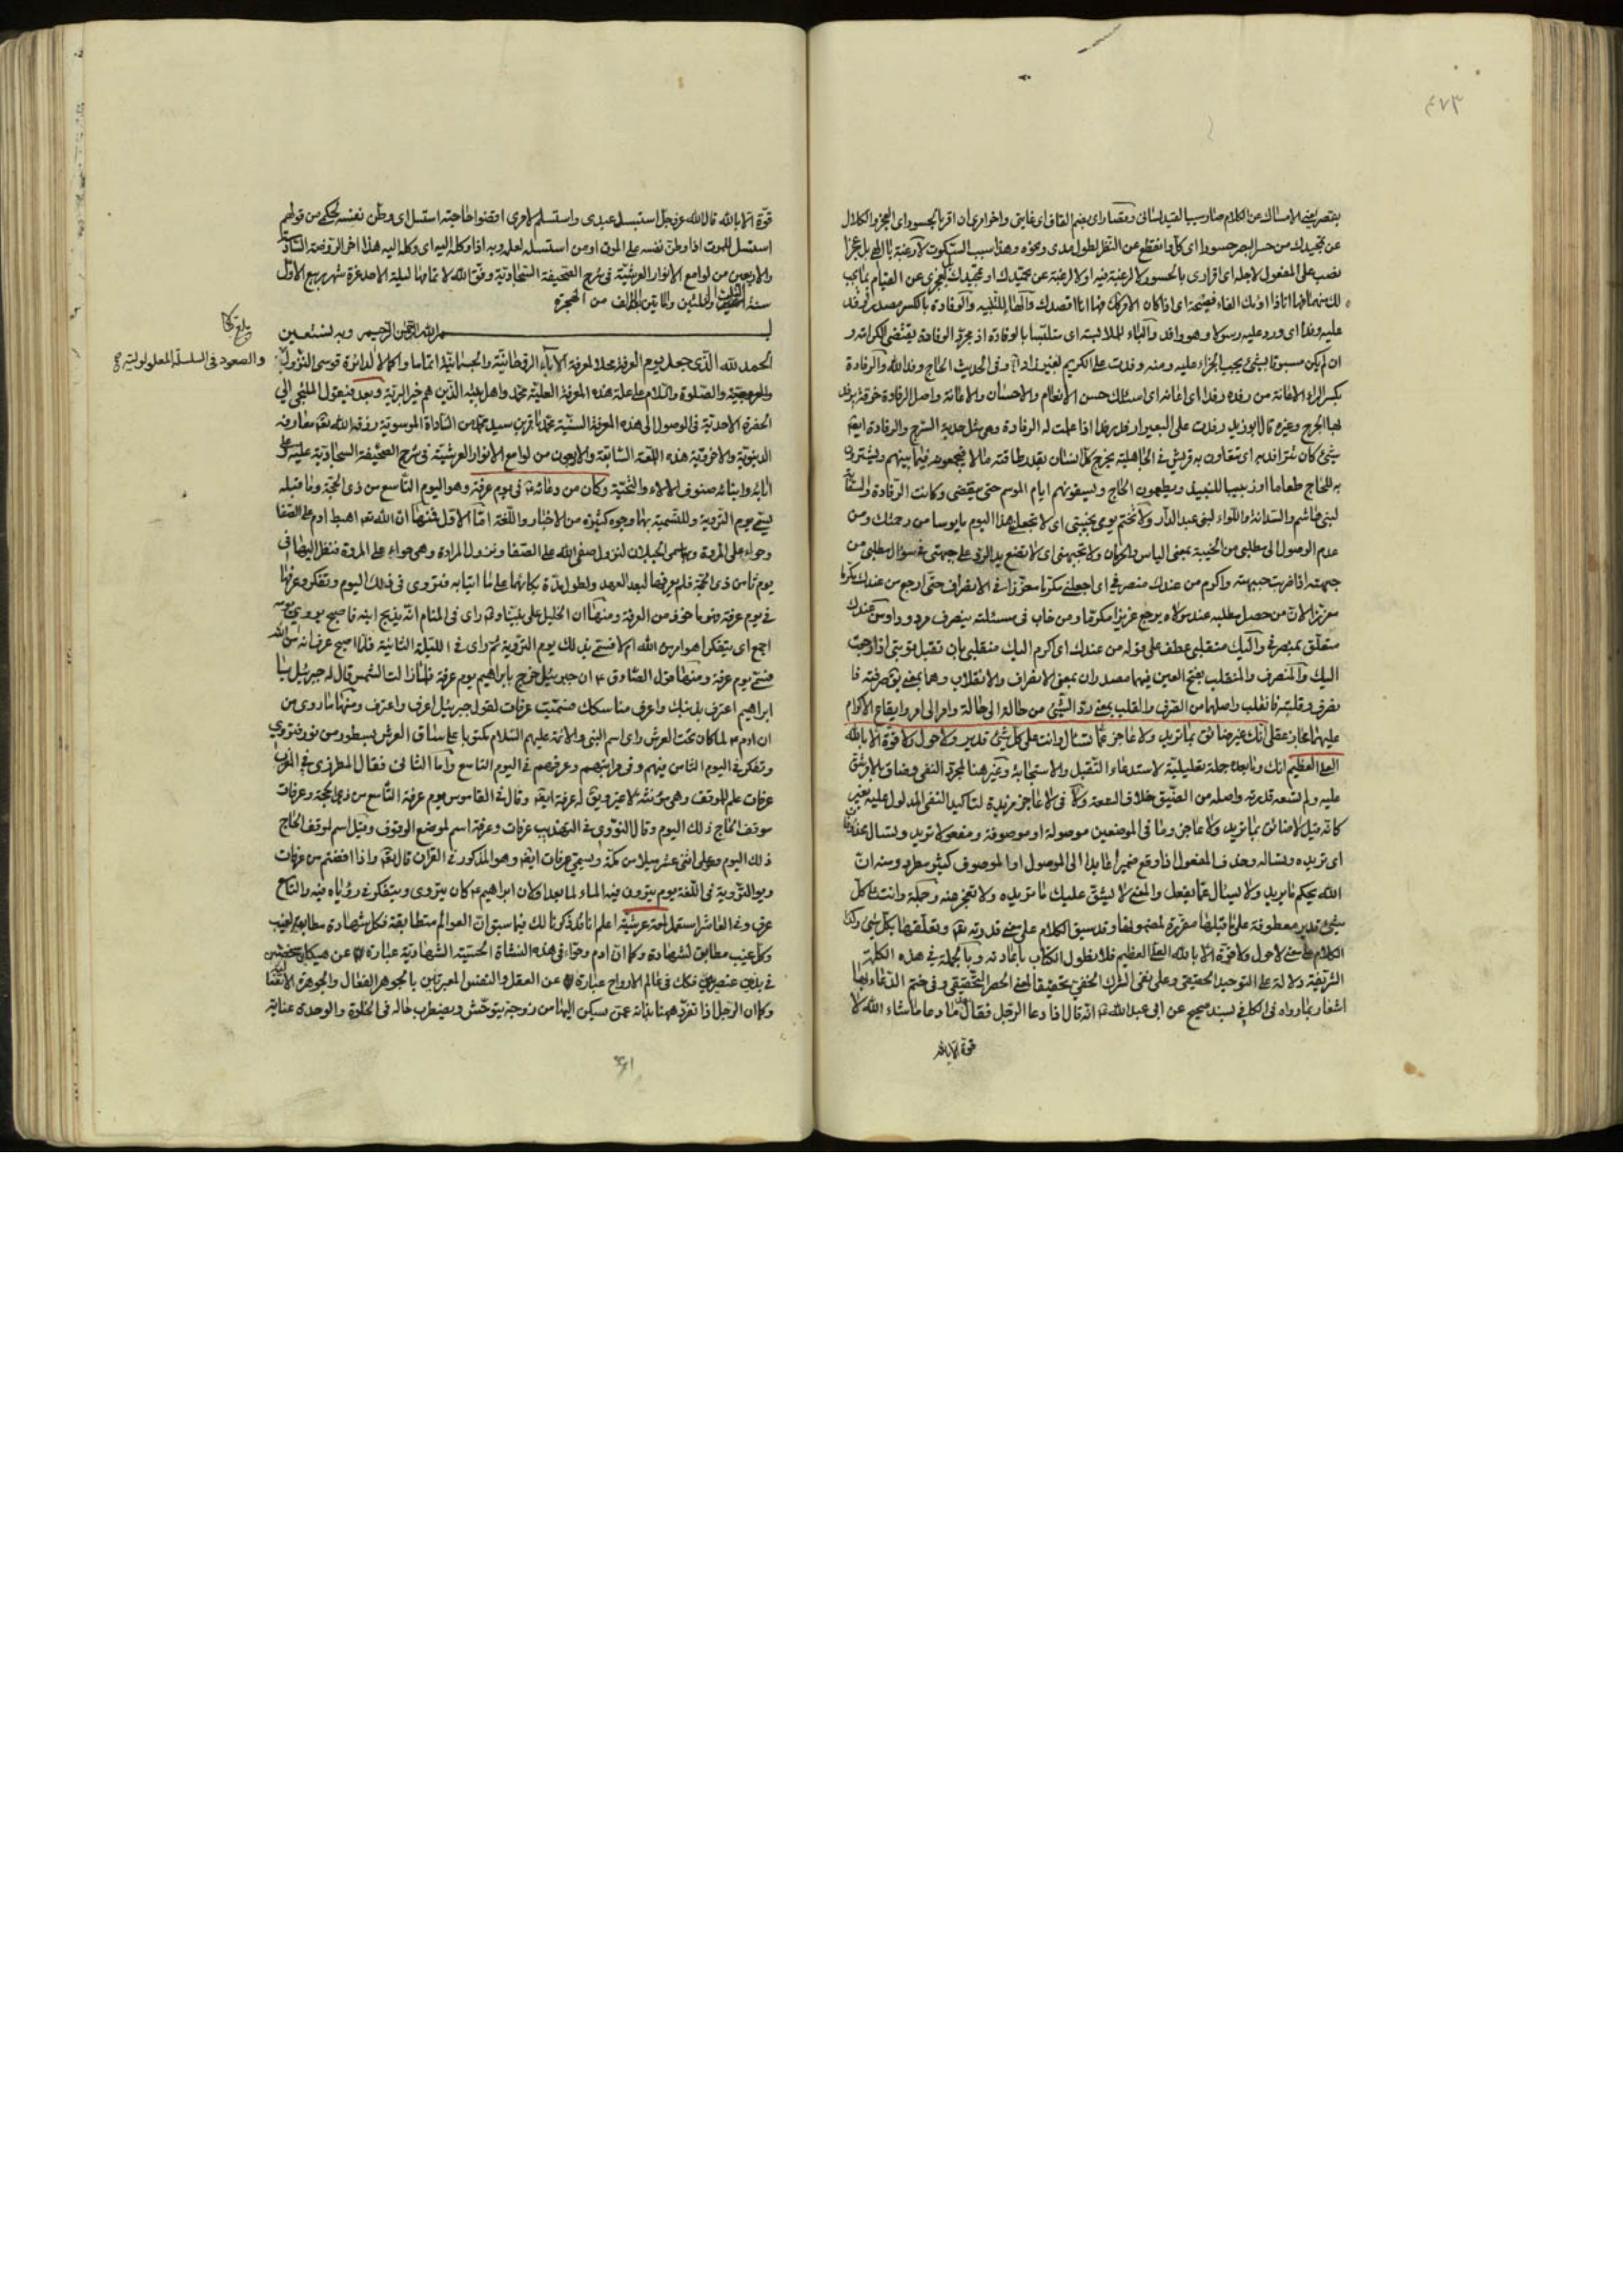 ٤٧٣
عن تحميدك من حسر البصر حسورا اى كلّ وانقطع عن النظر لطول مدى ونحوه وهذا سبب السكوت لا رغبة يا الهى بل عجزا
نصب على المفعول لاجله اى اقرارى بالحسور لا لرغبة فيه او لا لرغبة عن تحميدك او تمجيدك بل لعجزى عن القيام بما يجب
عليه وفدا اى ورد عليه رسولا وهو وافد والباء للملابسة اى متلبسا بالوفادة اذ مجرّد الوفادة يقتضى الكرامة و
ان لم يكن مسبوقا بشئ يجب الجزاء عليه ومنه وفدت على الكريم بغير زاد وفى الحديث الحاج وفد الله والرفادة
بكسر الراء الاعانة من رفده رفدا اى اعانه اى اسئلك حسن الانعام والاحسان والاعانة واصل الرفادة خرقة
لها الجرح وغيره قال ابوزيد رفدت على البعير ارفد رفدا اذا عملت له الرفادة وهى مثل جدية السرج والرفادة ايضا
شئ كان تترافد به اى تتعاون به قريش فى الجاهلية يخرج كل انسان بقدر طاقته مالا فيجمعونه فيما بينهم ويشترون
به للحاج طعاما او زبيبا للنبيذ ويطعمون الحاج ويسقونهم ايام الموسم حتى ينقضى وكانت الرفادة والسقاية
لبنى هاشم والسدانة واللواء لبنى عبد الدار ولا تختم يومى بخيبتى اى لا تجعل هذا اليوم مايوسا من رحمتك ومن
عدم الوصول الى مطلبى من الخيبة بمعنى الياس والحرمان ولا تجبهنى اى لا تضع يد الرد على جبهتى فى سؤال مطلبى من
جبهته اذا ضربت جبهته واكرم من عندك منصرفى اى اجعلنى مكرما معززا فى الانصراف حتى ارجع من عندك مكرما
معززا لانّ من حصل مطلبه عند مولاه يرجع عزيزا مكرما ومن خاب فى مسئلته ينصرف مردودا ومن عندك
متعلّق بمنصرفى واليك منقلبى عطف على قوله من عندك اى اكرم اليك منقلبى بان تقبل توبتى اذا رجعت
اليك والمنصرف والمنقلب بفتح العين فيهما مصدران بمعنى الانصراف والانقلاب وهما بمعنى يقال صرفته فا
نصرف وقلبته فانقلب واصلهما من الصرف والقلب بمعنى ردّ الشئ من حالة الى حالة وامر الى امر وايقاع الاكرام
عليهما مجاز عقلى انك غير ضائق بما تريد ولا عاجز عمّا تسئل وانت على كل شئ قدير ولا حول ولا قوة الا بالله
العلى العظيم انك وما بعده جملة تعليلية لاستدعاء التقبل والاستجابة وغير هنا لمجرّد النفى وضاق بالامر شق
عليه ولم تسعه قدرته واصله من الضيق خلاف السعة ولا فى لا عاجز مزيدة لتاكيد النفى المدلول عليه بغير
كانّه قيل لا ضائق بما تريد ولا عاجز وما فى الموضعين موصولة او موصوفة ومفعولا تريد وتسال محذوفان
اى تريده وتساله وحذف المفعول اذا وقع ضميرا عايدا الى الموصول او الموصوف كثير مطرد ومنه ان
الله يحكم ما يريد ولا يسال عمّا يفعل والمعنى لا يشق عليك ما تريده ولا تعجز عنه وجملة وانت على كل
شئ قدير معطوفة على ما قبلها مقررة لمضمونها وقد سبق الكلام على معنى قدرته تعالى وتعلقها بكل شئ وكذا
الكلام على معنى لا حول ولا قوة الا بالله العلى العظيم فلا نطول الكتاب باعادته وبالجملة فى هذه الكلمة
الشريفة دلالة على التوحيد الحقيقى وعلى نفى الشرك الخفى تحقيقا لمعنى الحصر الحقيقى وفى ختم الدعاء بها
اشعار بما رواه فى الكافى بسند صحيح عن ابى عبد الله انه قال اذا دعا الرجل فقال بعد ما دعا ما شاء الله لا
قوة الا بالله
قوّة الا بالله قال الله عزوجل استبسل عبدى واستسلم لامرى اقضوا حاجته استبسل اى وطّن نفسه
استبسل للموت اذا وطّن نفسه على الموت
والاربعين من لوامع الانوار العرشيّة فى شرح الصحيفة السجادية وفق الله لاتمامها ليلة الاحد غرة شهر ربيع الاول
سنة الثلث والثلثين والمايتين الالف من الهجرة
بسم الله الرحمن الرحيم وبه نستعين
الحمد لله الّذى جعل يوم العرفة محلا لمعرفة الآباء الروحانيّة والجسمانيّة اتماما واكمالا لدائرة قوسى النزول
والصعود فى السلسلة المعلولية
والعروجية والصلوة والسلام على علة هذه المعرفة العلية محمد واهل بيته الذين هم خير البرية وبعد فيقول الملتجى الى
الحضرة الاحدية فى الوصول الى هذه المعرفة السنيّة محمد باقر بن سيد محمد من السادات الموسوية رزقه الله تعالى معارفه
الدنيوية والاخروية هذه اللمعة السابعة والاربعون من لوامع الانوار العرشية فى شرح الصحيفة السجادية عليه وعلى
آبائه وابنائه صنوف الآلاء والتحية وكان من دعائه فى يوم عرفة وهو اليوم التاسع من ذى الحجة وما قبله
يسمّى يوم التروية وللتسمية بهما وجوه كثيرة من الاخبار واللّغة امّا الاوّل فمنها انّ الله تعالى اهبط ادم على الصفا
وحواء على المروة وبهما سمى الجبلان لنزول صفى الله على الصفا ونزول المراة وهى حواء على المروة فنظر اليها فى
يوم ثامن ذى الحجة فلم يعرفها لبعد العهد ولطول مدة بكائهما على ما ابتليا به فتروى فى ذلك اليوم وتفكر وعرفها
فى يوم عرفة فهو ماخوذ من العرفة ومنها ان الخليل على نبينا و راى فى المنام انّه يذبح ابنه فاصبح يومه
اجمع اى يتفكر اهو امر من الله ام لا فسمى بذلك يوم التروية ثم راى فى الليلة الثانية فلمّا اصبح عرف انه من الله
فسمّى يوم عرفة ومنها قول الصادق ع ان جبرئيل خرج بابراهيم يوم عرفة فلما زالت الشمس قال له جبرئيل يا
ابراهيم اعترف بذنبك واعرف مناسكك فسمّيت عرفات لقول جبرئيل اعرف واعترف ومنها ما روى من
ان ادم ع لما كان تحت العرش راى اسم النبى والائمة عليهم السلام مكتوبا على ساق العرش بسطور من نور فتروى
وتفكر فى اليوم الثامن فيهم وفى مراتبهم وعرفهم فى اليوم التاسع وامّا الثانى فقال المطرزى فى المغرب
عرفات علم للموقف وهى منونة لا غير ويقال لها عرفة ايضا وقال فى القاموس يوم عرفة التاسع من ذى الحجة وعرفات
موقف الحاج ذلك اليوم وقال النووى فى التهذيب عرفات وعرفة اسم لموضع الوقوف وقيل اسم لموقف الحاج
ذلك اليوم وعلى اثنى عشر ميلا من مكّة ويسمى عرفات ايضا وهو المذكور فى القران قال تعالى واذا افضتم من عرفات
ويوم التّروية فى اللغة يوم يتروون فيه الماء لما بعد او لان ابراهيم ع كان يتروى ويتفكر فى رؤياه فيه والتاسع
عرف وفى العاشر استعمل لمعة عرشيّة اعلم انا قد ذكرنا لك فيما سبق ان العوالم متطابقة فكل شهادة مطابق لغيب
وكل غيب مطابق لشهادة وكما ان ادم وحواء فى هذه النشاة الحسية الشهادية عبارة عن هيكلين شخصين
فى بدنين عنصريين فكك فى عالم الارواح عبارة عن العقل والنفس المعبرين بالجوهر الفعال والجوهرة الانفعا